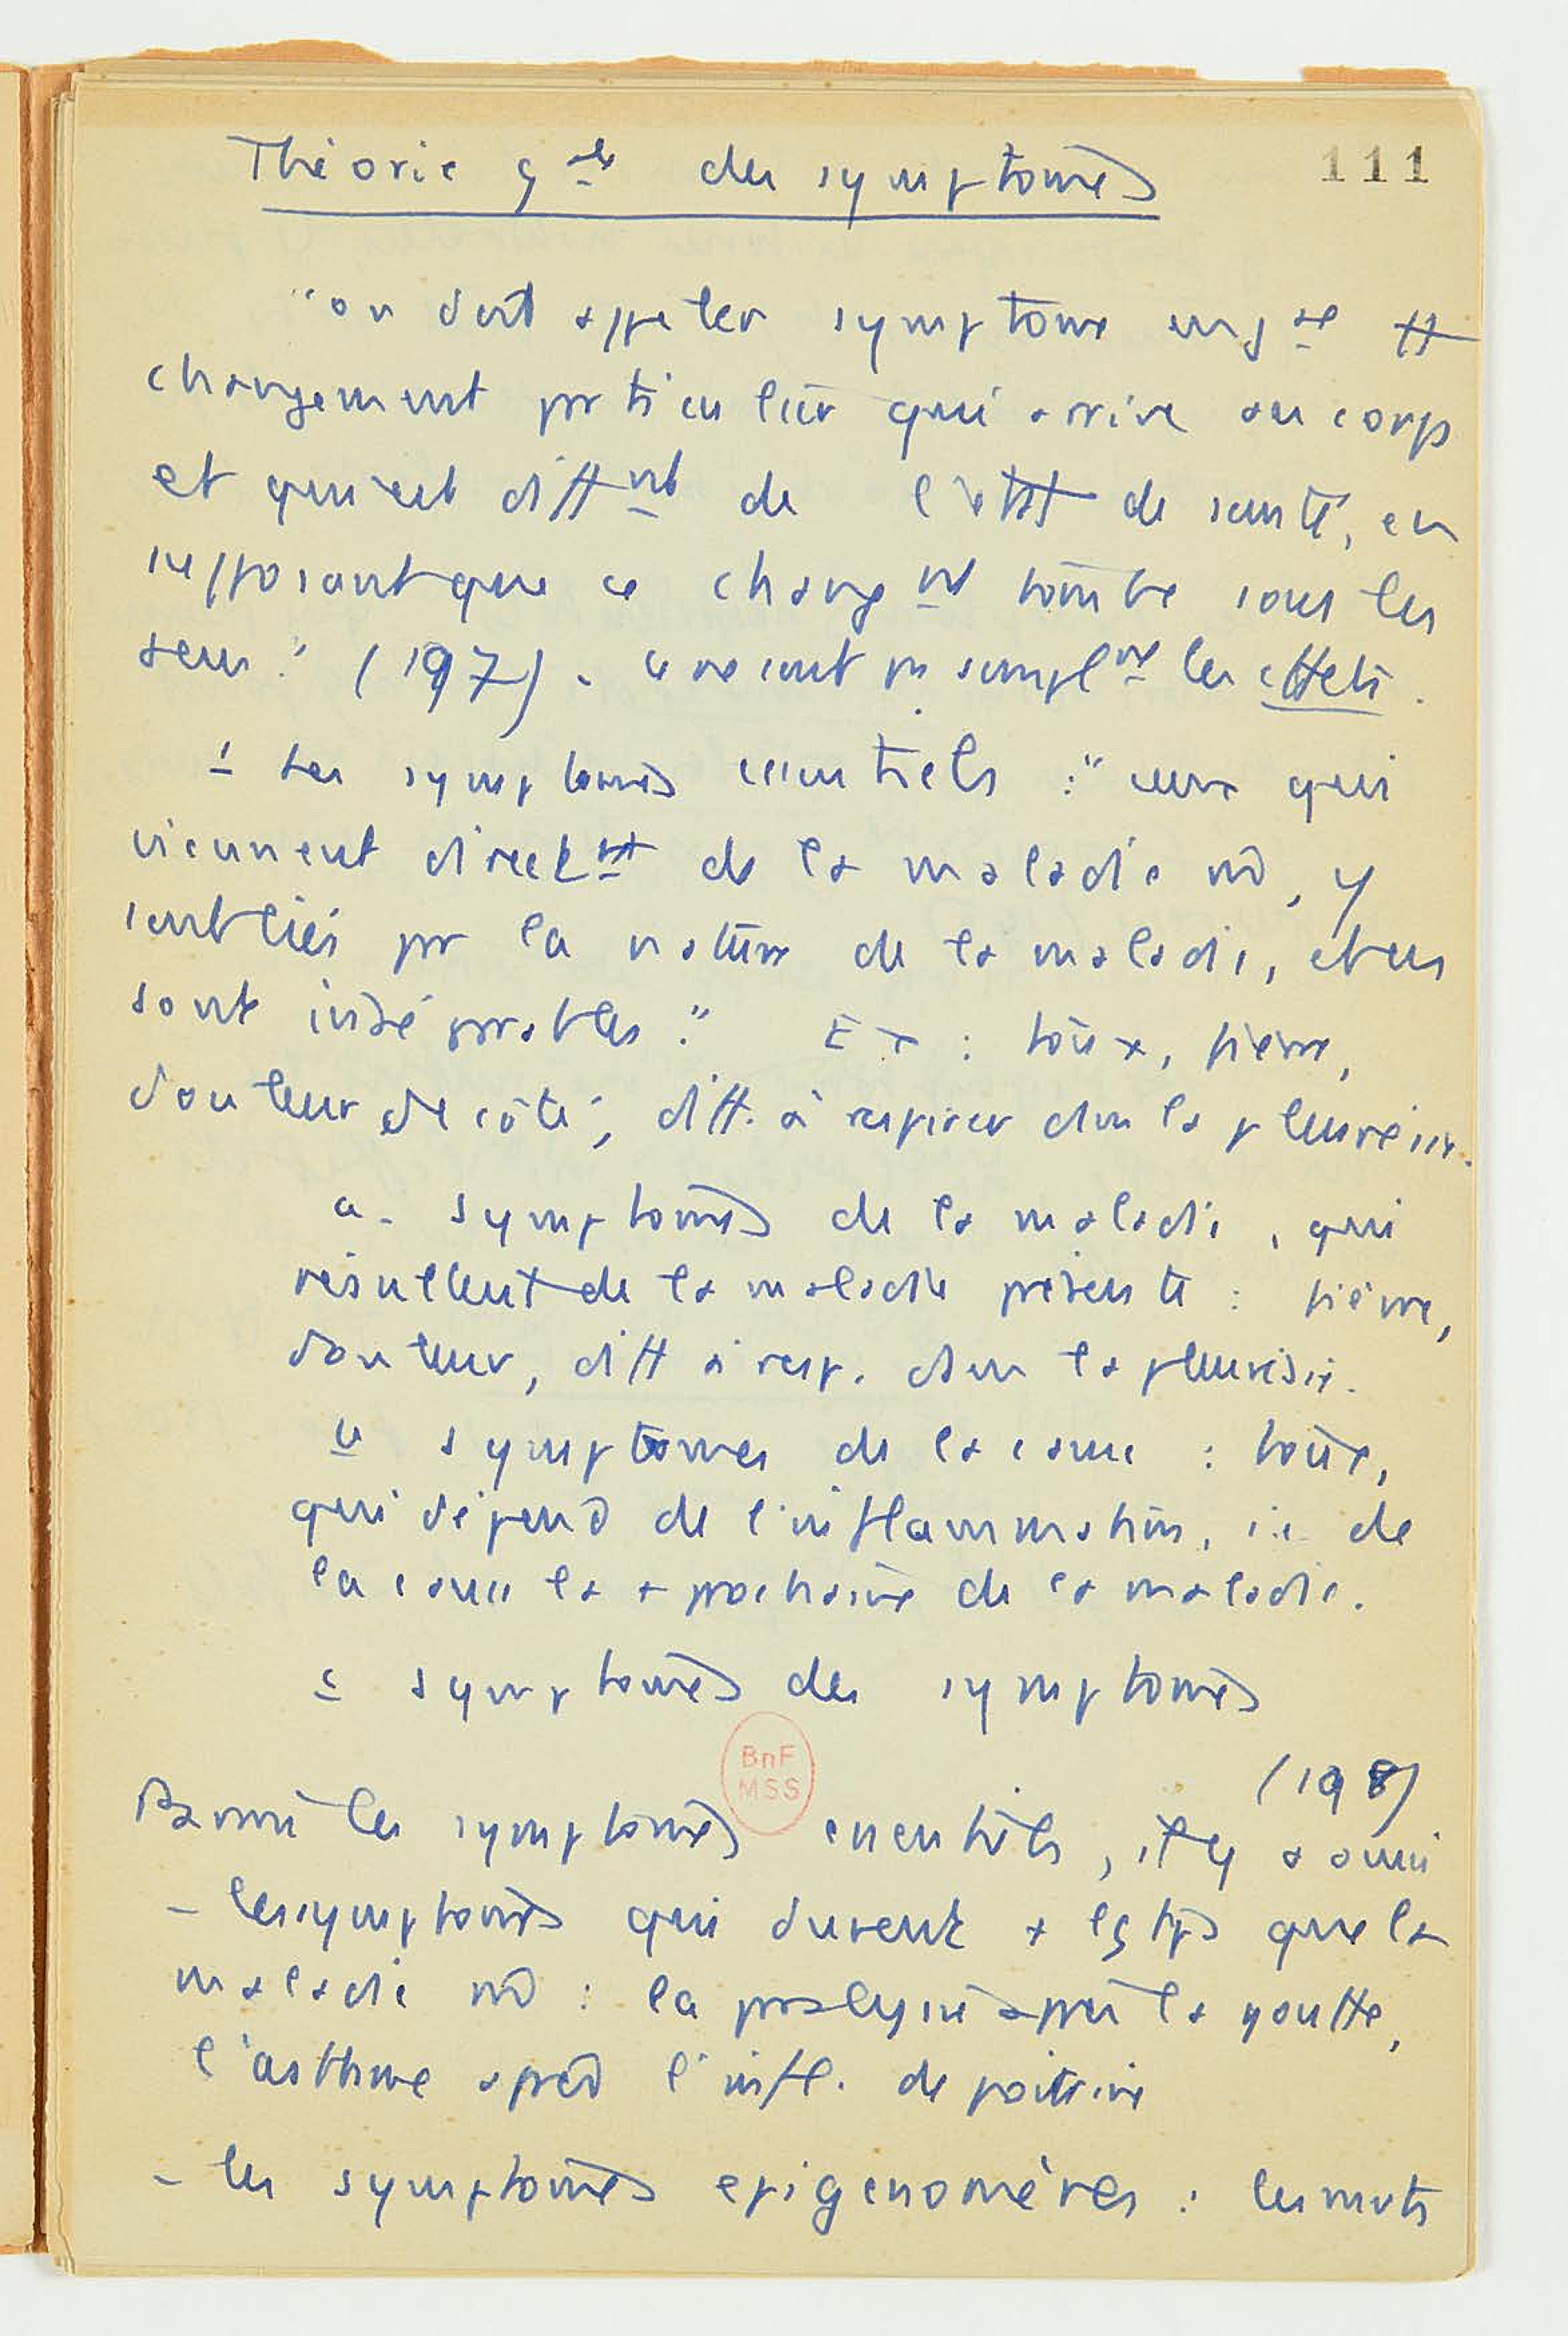 Théorie gale des symptomes
111
"on doit appeler symptome en gal tt
changement particulier qui arrive au corps
et qui est diffnt de l'état de santé, en
supposant que ce changnt tombe sous les
sens." (197). Ce ne sont pas simplnt les effets.
1 Les symptomes essentiels : "ceux qui
viennent directnt de la maladie m̂, y
sont liés par la nature de la maladie, et en
sont inséparables." Ex : toux, fièvre,
douleur de côté, diff. à respirer dans la pleurésie.
a. symptomes de la maladie, qui
résultent de la maladie présente : fièvre,
douleur, diff à resp. dans la pleurésie.
b symptomes de la cause : toux,
qui dépend de l'inflammation, i.e. de
la cause la + prochaine de la maladie.
c symptomes des symptomes
(198)
Parmi les symptomes essentiels, il y a aussi
- les symptomes qui durent + lgtps que la
maladie m̂ : la paralysie après la goutte,
l'asthme après l'infl. de poitrine
- les symptomes epigenomènes :
BnF
MSS